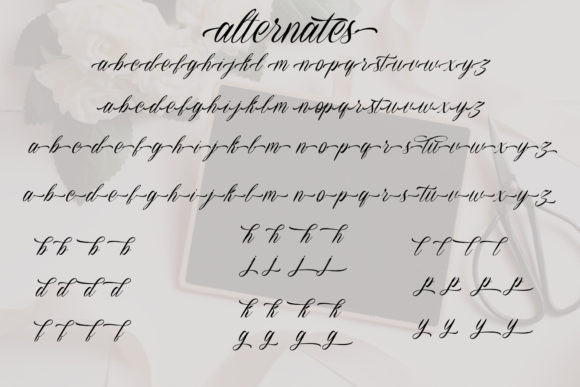 alternates
abcdefghijkl m nopqrstuvwxyz
abcdefghijklm nopqrstuvwxyz
abcdefghijklm nopqrstuvwxyz
abcdefghijklm nopqrstuvwxyz
b b b b
d d d d
f f f f
h h h h
j j j j
k k k k
g g g g
l l l l
p p p p
y y y y